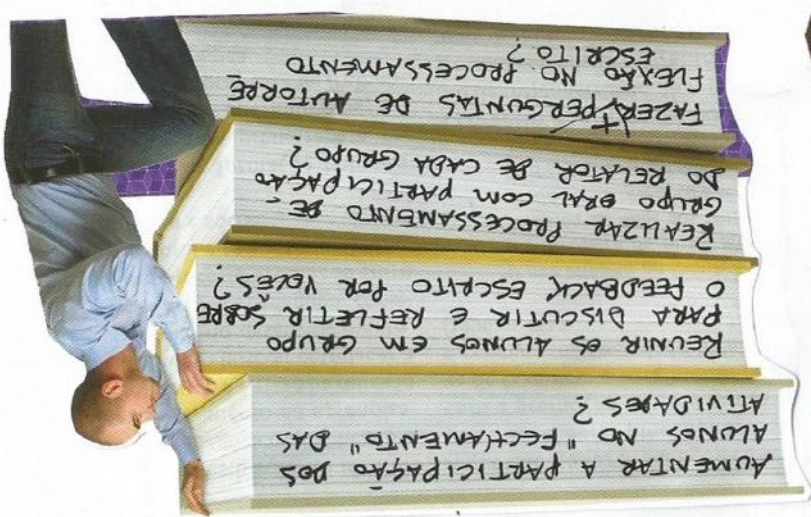 AUMENTAR A PARTICIPAÇÃO DOS
ALUNOS NO "FECHAMENTO" DAS
ATIVIDADES?
REUNIR OS ALUNOS EM GRUPO
PARA DISCUTIR E REFLETIR SOBRE
O FEEDBACK ESCRITO POR VOCÊS?
REALIZAR PROCESSAMENTO DE
GRUPO ORAL COM PARTICIPAÇÃO
DO RELATOR DE CADA GRUPO?
FAZER + PERGUNTAS DE AUTORRE
FLEXÃO NO PROCESSAMENTO
ESCRITO?